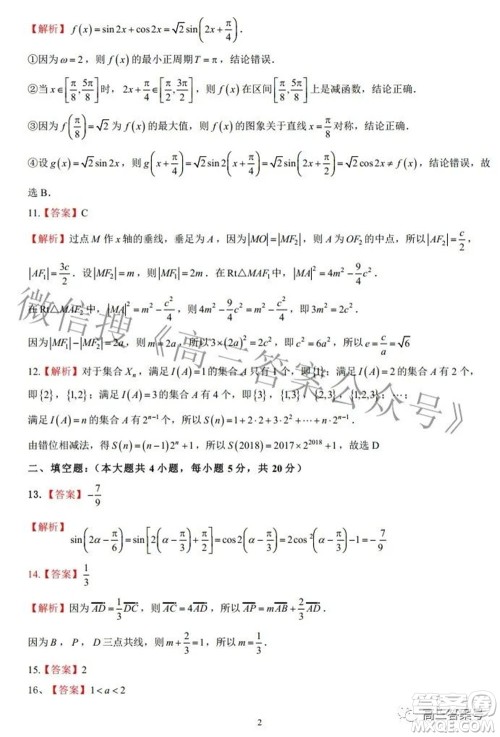 【解析】f(x)=sin2x+cos2x=√2sin(2x+π/4).
①因为ω=2，则f(x)的最小正周期T=π，结论错误．
②当x∈[π/8,5π/8]时，2x+π/4∈[π/2,3π/2]，则f(x)在区间[π/8,5π/8]上是减函数，结论正确．
③因为f(π/8)=√2为f(x)的最大值，则f(x)的图象关于直线x=π/8对称，结论正确．
④设g(x)=√2sin2x，则g(x+π/4)=√2sin2(x+π/4)=√2sin(2x+π/2)=√2cos2x≠f(x)，结论错误，故
选B．
11.【答案】C
【解析】过点M作x轴的垂线，垂足为A，因为|MO|=|MF₂|，则A为OF₂的中点，所以|AF₂|=c/2，
|AF₁|=3c/2．设|MF₂|=m，则|MF₁|=2m．在Rt△MAF₁中，|MA|²=4m²-9/4c²．
在Rt△MAF₂中，|MA|²=m²-c²/4，则4m²-9/4c²=m²-c²/4，即3m²=2c²．
因为|MF₁|-|MF₂|=2a，则m=2a，所以3×(2a)²=2c²，即c²=6a²，所以e=c/a=√6
12.【解析】对于集合Xₙ，满足I(A)=1的集合A只有1个，即{1}；满足I(A)=2的集合A有2个，
即{2}，{1,2}；满足I(A)=3的集合A有4个，即{3}，{1,3}，{2,3}，{1,2,3}；…；
满足I(A)=n的集合A有2ⁿ⁻¹个，所以S(n)=1+2·2+3·2²+…+n·2ⁿ⁻¹．
由错位相减法，得S(n)=(n-1)2ⁿ+1，所以S(2018)=2017×2²⁰¹⁸+1，故选D
二、填空题：（本大题共4小题，每小题5分，共20分）
13.【答案】-7/9
【解析】sin(2α-π/6)=sin[2(α-π/3)+π/2]=cos2(α-π/3)=2cos²(α-π/3)-1=-7/9
14.【答案】1/3
【解析】因为AD=1/3DC，则AC=4AD，所以AP=mAB+2/3AD．
因为B，P，D三点共线，则m+2/3=1，所以m=1/3．
15.【答案】2
16、【答案】1<a<2
2
微信搜《高三答案公众号》
高三答案号